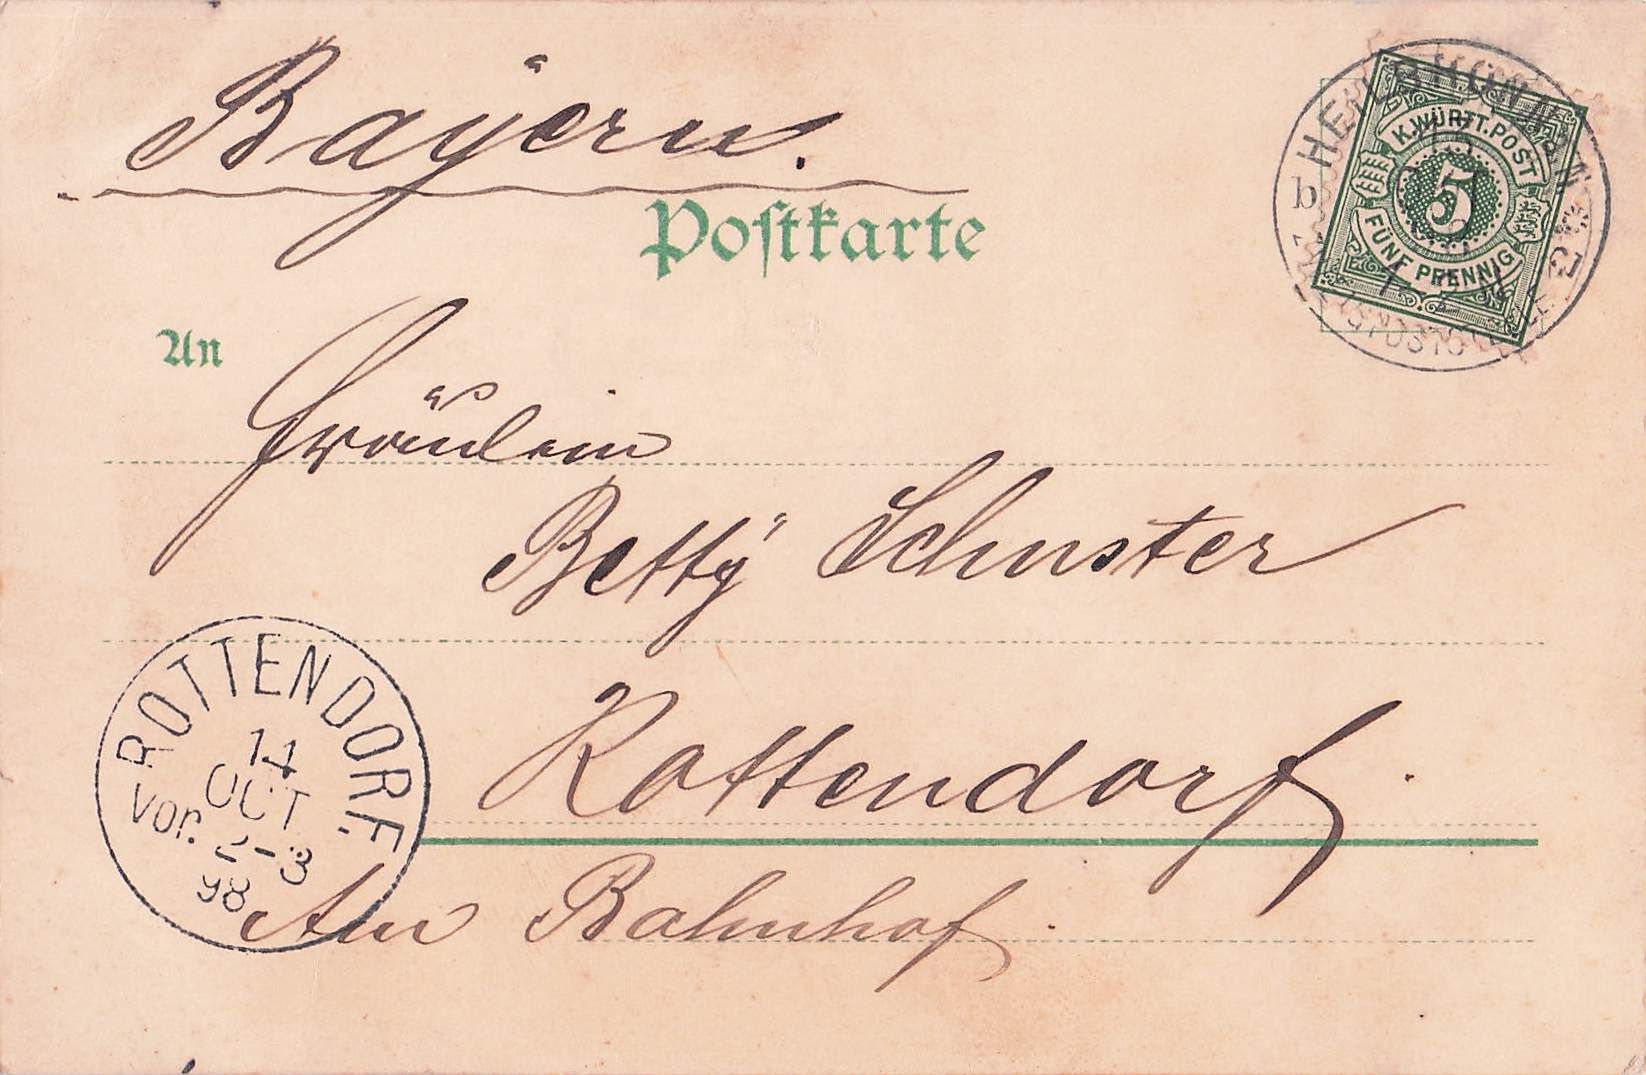 Bayern.
Postkarte
K. WÜRTT. POST
5
FÜNF PFENNIG
b
An
Fräulein
Betty Schuster
Rottendorf.
ROTTENDORF.
14
OCT
Vor. 2-3
98
Am Bahnhof.